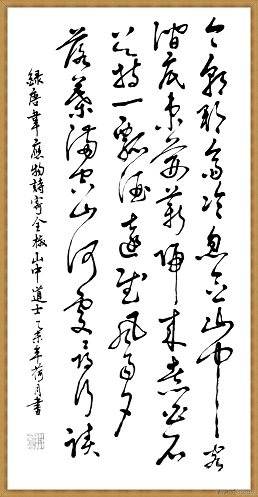 今朝郡齋冷忽念山中客
澗底束荊薪歸來煮白石
欲持一瓢酒遠慰風雨夕
落葉滿空山何處尋行跡
綠唐韋應物詩寄全椒山中道士乙未年荷月書